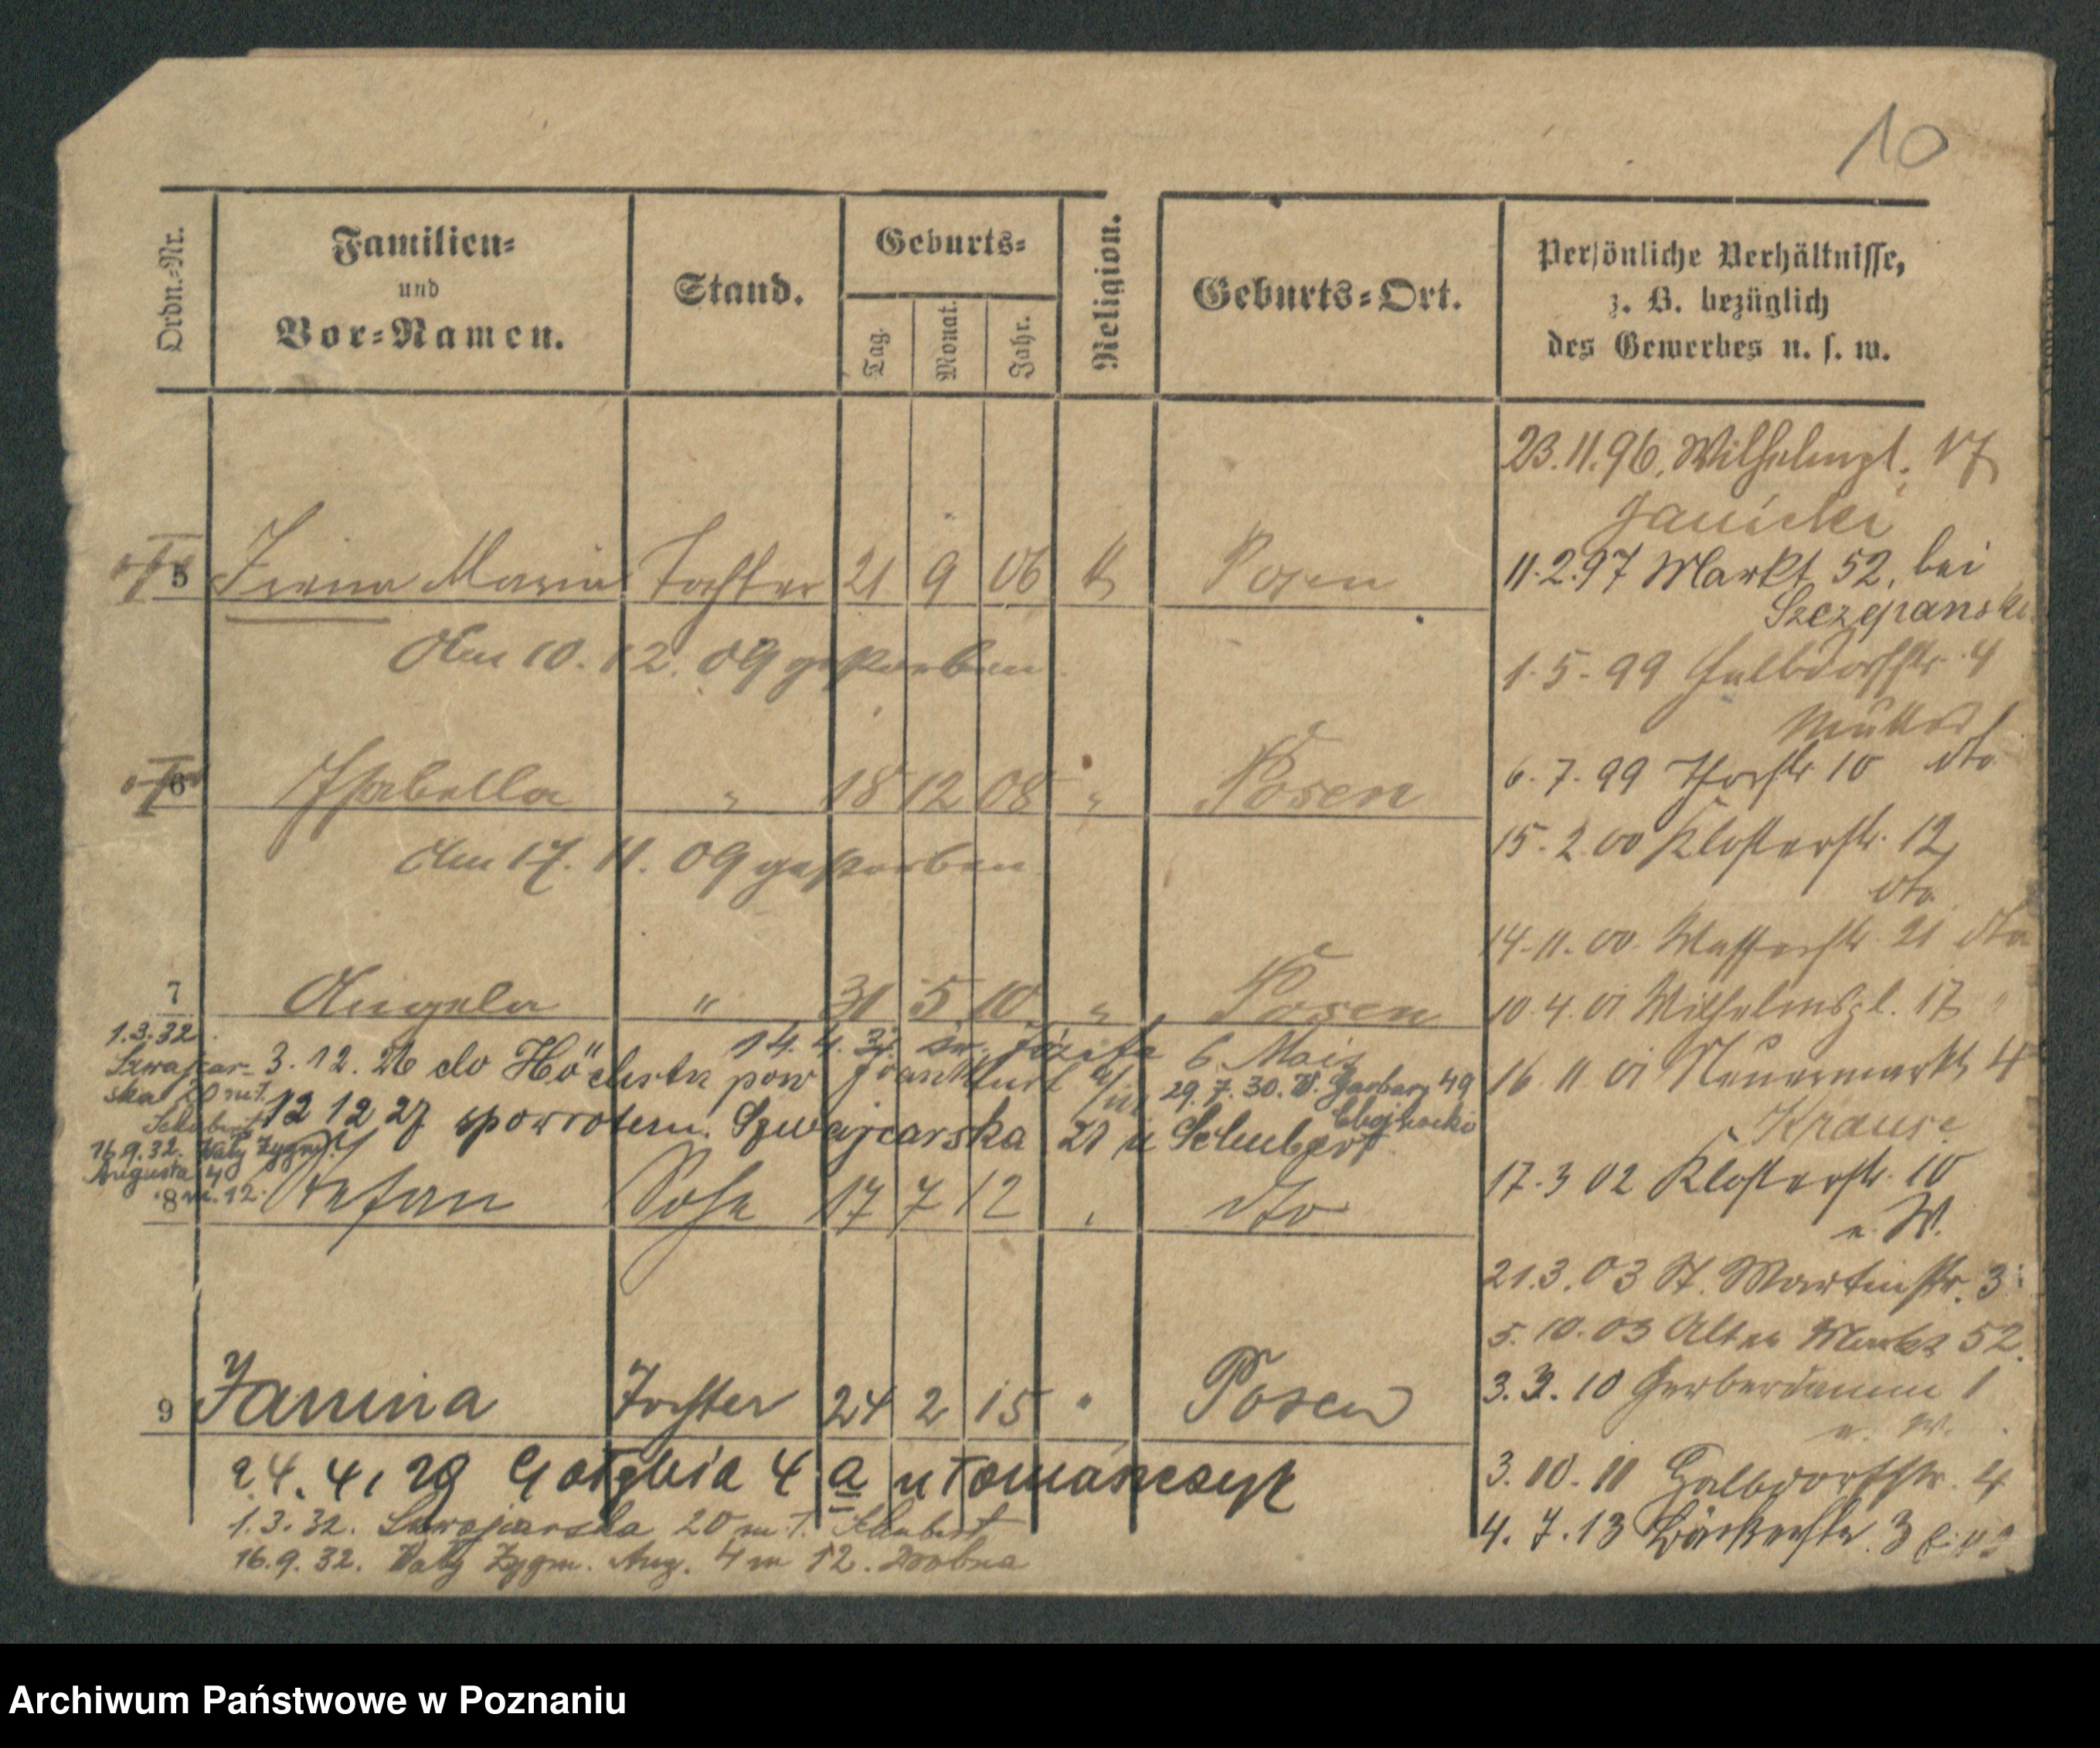 10
Ordn.-Nr.
Familien-
und
Vor-Namen.
Stand.
Geburts-
Tag.
Monat.
Jahr.
Religion.
Geburts-Ort.
Persönliche Verhältnisse,
z. B. bezüglich
des Gewerbes u. s. w.
5 Irena Maria Tochter 21 9 06 k Posen
Am 10. 12. 09 gestorben
6 Isabella " 18 12 08 " Posen
Am 17. 11. 09 gestorben
7 Angela " 31 5 10 " Posen
14. 4. św. Józefa 6 Mais
3. 12. 26 do Höchsta pow Frankfurt
29. 7. 30. W. Garbary 49
12 12 27 spowrotem. Szwajcarska u Schubert
1.3.32
Szwajcar-
ska 20 m 1.
Schubert
16.9.32. Wały Zygm.
Augusta 4
m. 12.
8 Stefan Sohn 17 7 12 " dto
9 Janina Tochter 24 2 15 " Posen
24. 4. 28 Gołębia 4 a u Tomańczyk
1.3.32. Szwajcarska 20 m 1. Schubert
16.9.32. Wały Zygm. Aug. 4 m 12. Drobna
23.11.96. Wilhelmpl. 17
Janicki
11.2.97 Markt 52, bei
Szczepanski
1.5.99 Halbdorfstr. 4
6.7.99 Thorstr 10 dto
15.2.00 Klosterstr. 12
dto
14.11.00. Wasserstr. 21 dto
10.4.01 Wilhelmspl. 17 "
16.11.01 Neuermarkt 4
Krause
17.3 02 Klosterstr. 10
e. W.
21.3.03 St. Martinstr. 3
5.10.03 Alter Markt 52.
3.3.10 Gerberdamm 1
e. W.
3.10.11 Halbdorfstr. 4
4.7.13 Bäckerstr. 3
Archiwum Państwowe w Poznaniu